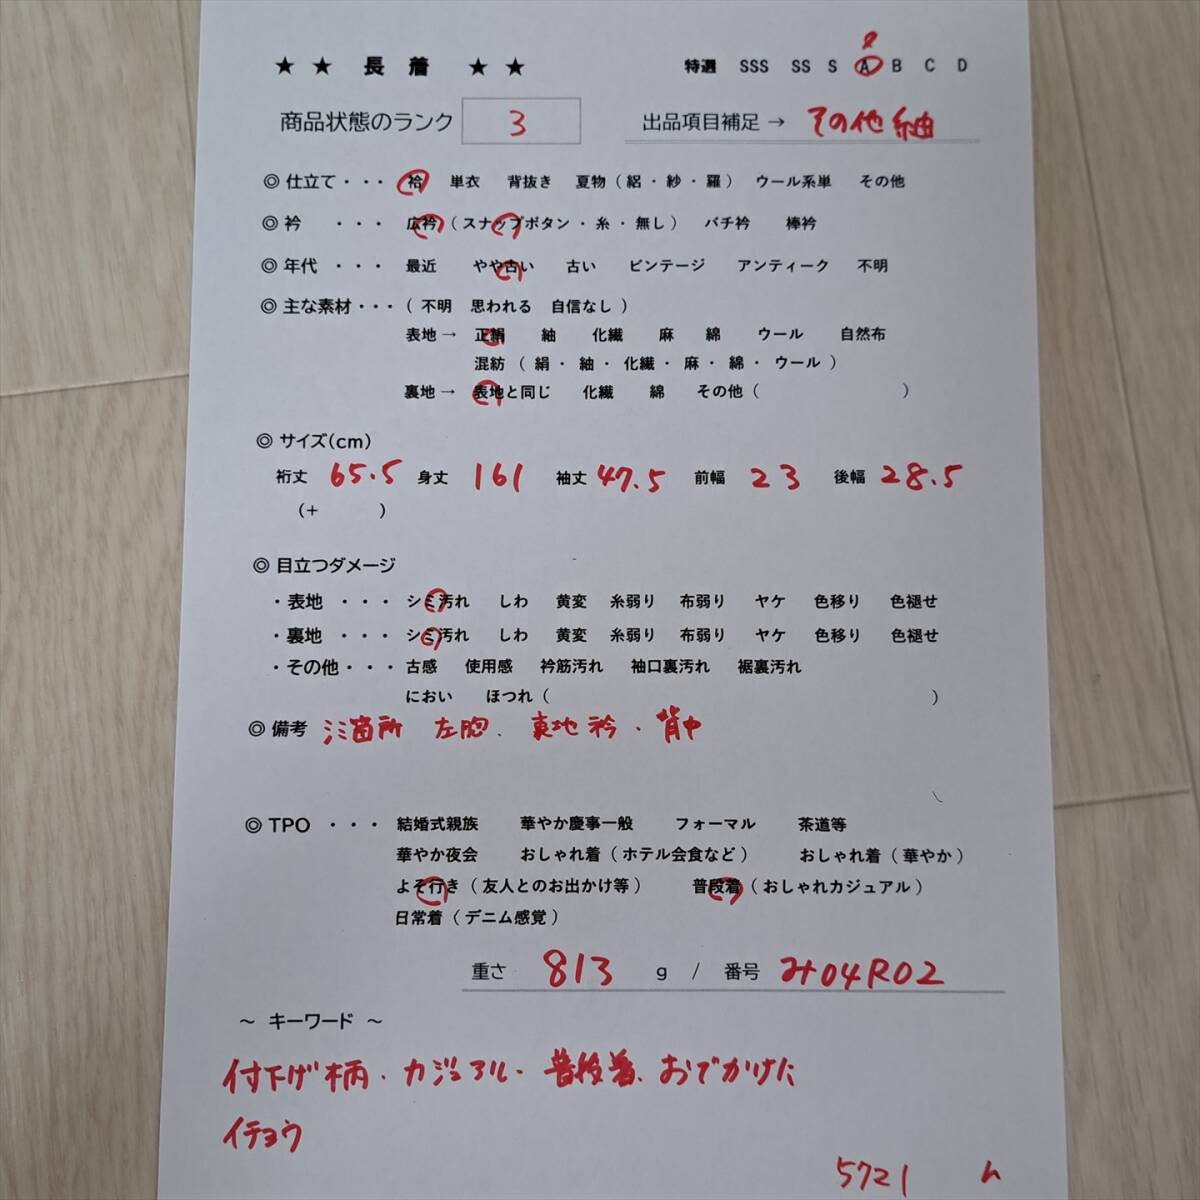 ★ ★ 長 着 ★ ★ 特選 SSS SS S A B C D
商品状態のランク 3 出品項目補足 → その他 紬
◎ 仕立て・・・ 袷 単衣 背抜き 夏物（ 絽 ・ 紗 ・ 羅 ） ウール系単 その他
◎ 衿 ・・・ 広衿（ スナップボタン ・ 糸 ・ 無し ） バチ衿 棒衿
◎ 年代 ・・・ 最近 やや古い 古い ビンテージ アンティーク 不明
◎ 主な素材・・・（ 不明 思われる 自信なし ）
表地 → 正絹 紬 化繊 麻 綿 ウール 自然布
混紡 （ 絹 ・ 紬 ・ 化繊 ・ 麻 ・ 綿 ・ ウール ）
裏地 → 表地と同じ 化繊 綿 その他（ ）
◎ サイズ(cm)
裄丈 65.5 身丈 161 袖丈 47.5 前幅 23 後幅 28.5
（+ ）
◎ 目立つダメージ
・表地 ・・・ シミ汚れ しわ 黄変 糸弱り 布弱り ヤケ 色移り 色褪せ
・裏地 ・・・ シミ汚れ しわ 黄変 糸弱り 布弱り ヤケ 色移り 色褪せ
・その他・・・ 古感 使用感 衿筋汚れ 袖口裏汚れ 裾裏汚れ
におい ほつれ（ ）
◎ 備考 シミ箇所 左胸、裏地 衿・背中
◎ TPO ・・・ 結婚式親族 華やか慶事一般 フォーマル 茶道等
華やか夜会 おしゃれ着（ ホテル会食など ） おしゃれ着（ 華やか ）
よそ行き（ 友人とのお出かけ等 ） 普段着（ おしゃれカジュアル ）
日常着（ デニム感覚 ）
重さ 813 g / 番号 み04R02
～ キーワード ～
付下げ柄・カジュアル・普段着、おでかけた
イチョウ
5721